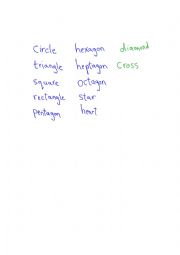 Circle hexagon diamond
triangle heptagon Cross
square Octagon
rectangle star
pentagon heart